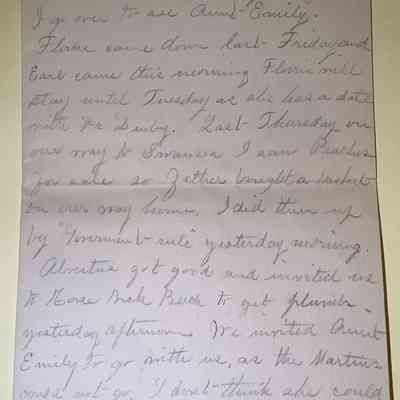 I go over to see Aunt Emily".
Florie came down last Friday and
Earl came this morning Florie will
stay until Tuesday as she has a date
with Dr Derby. Last Thursday on
our way to Swansea I saw Peaches
for sale so Father bought a basket
on our way home. I did them up
by "Government rule" yesterday morning.
got good and invited us
to Horse Neck Beach to get plumbs
yesterday afternoon We invited Aunt
Emily to go with us, as the Martins
could not go. I don't think she could